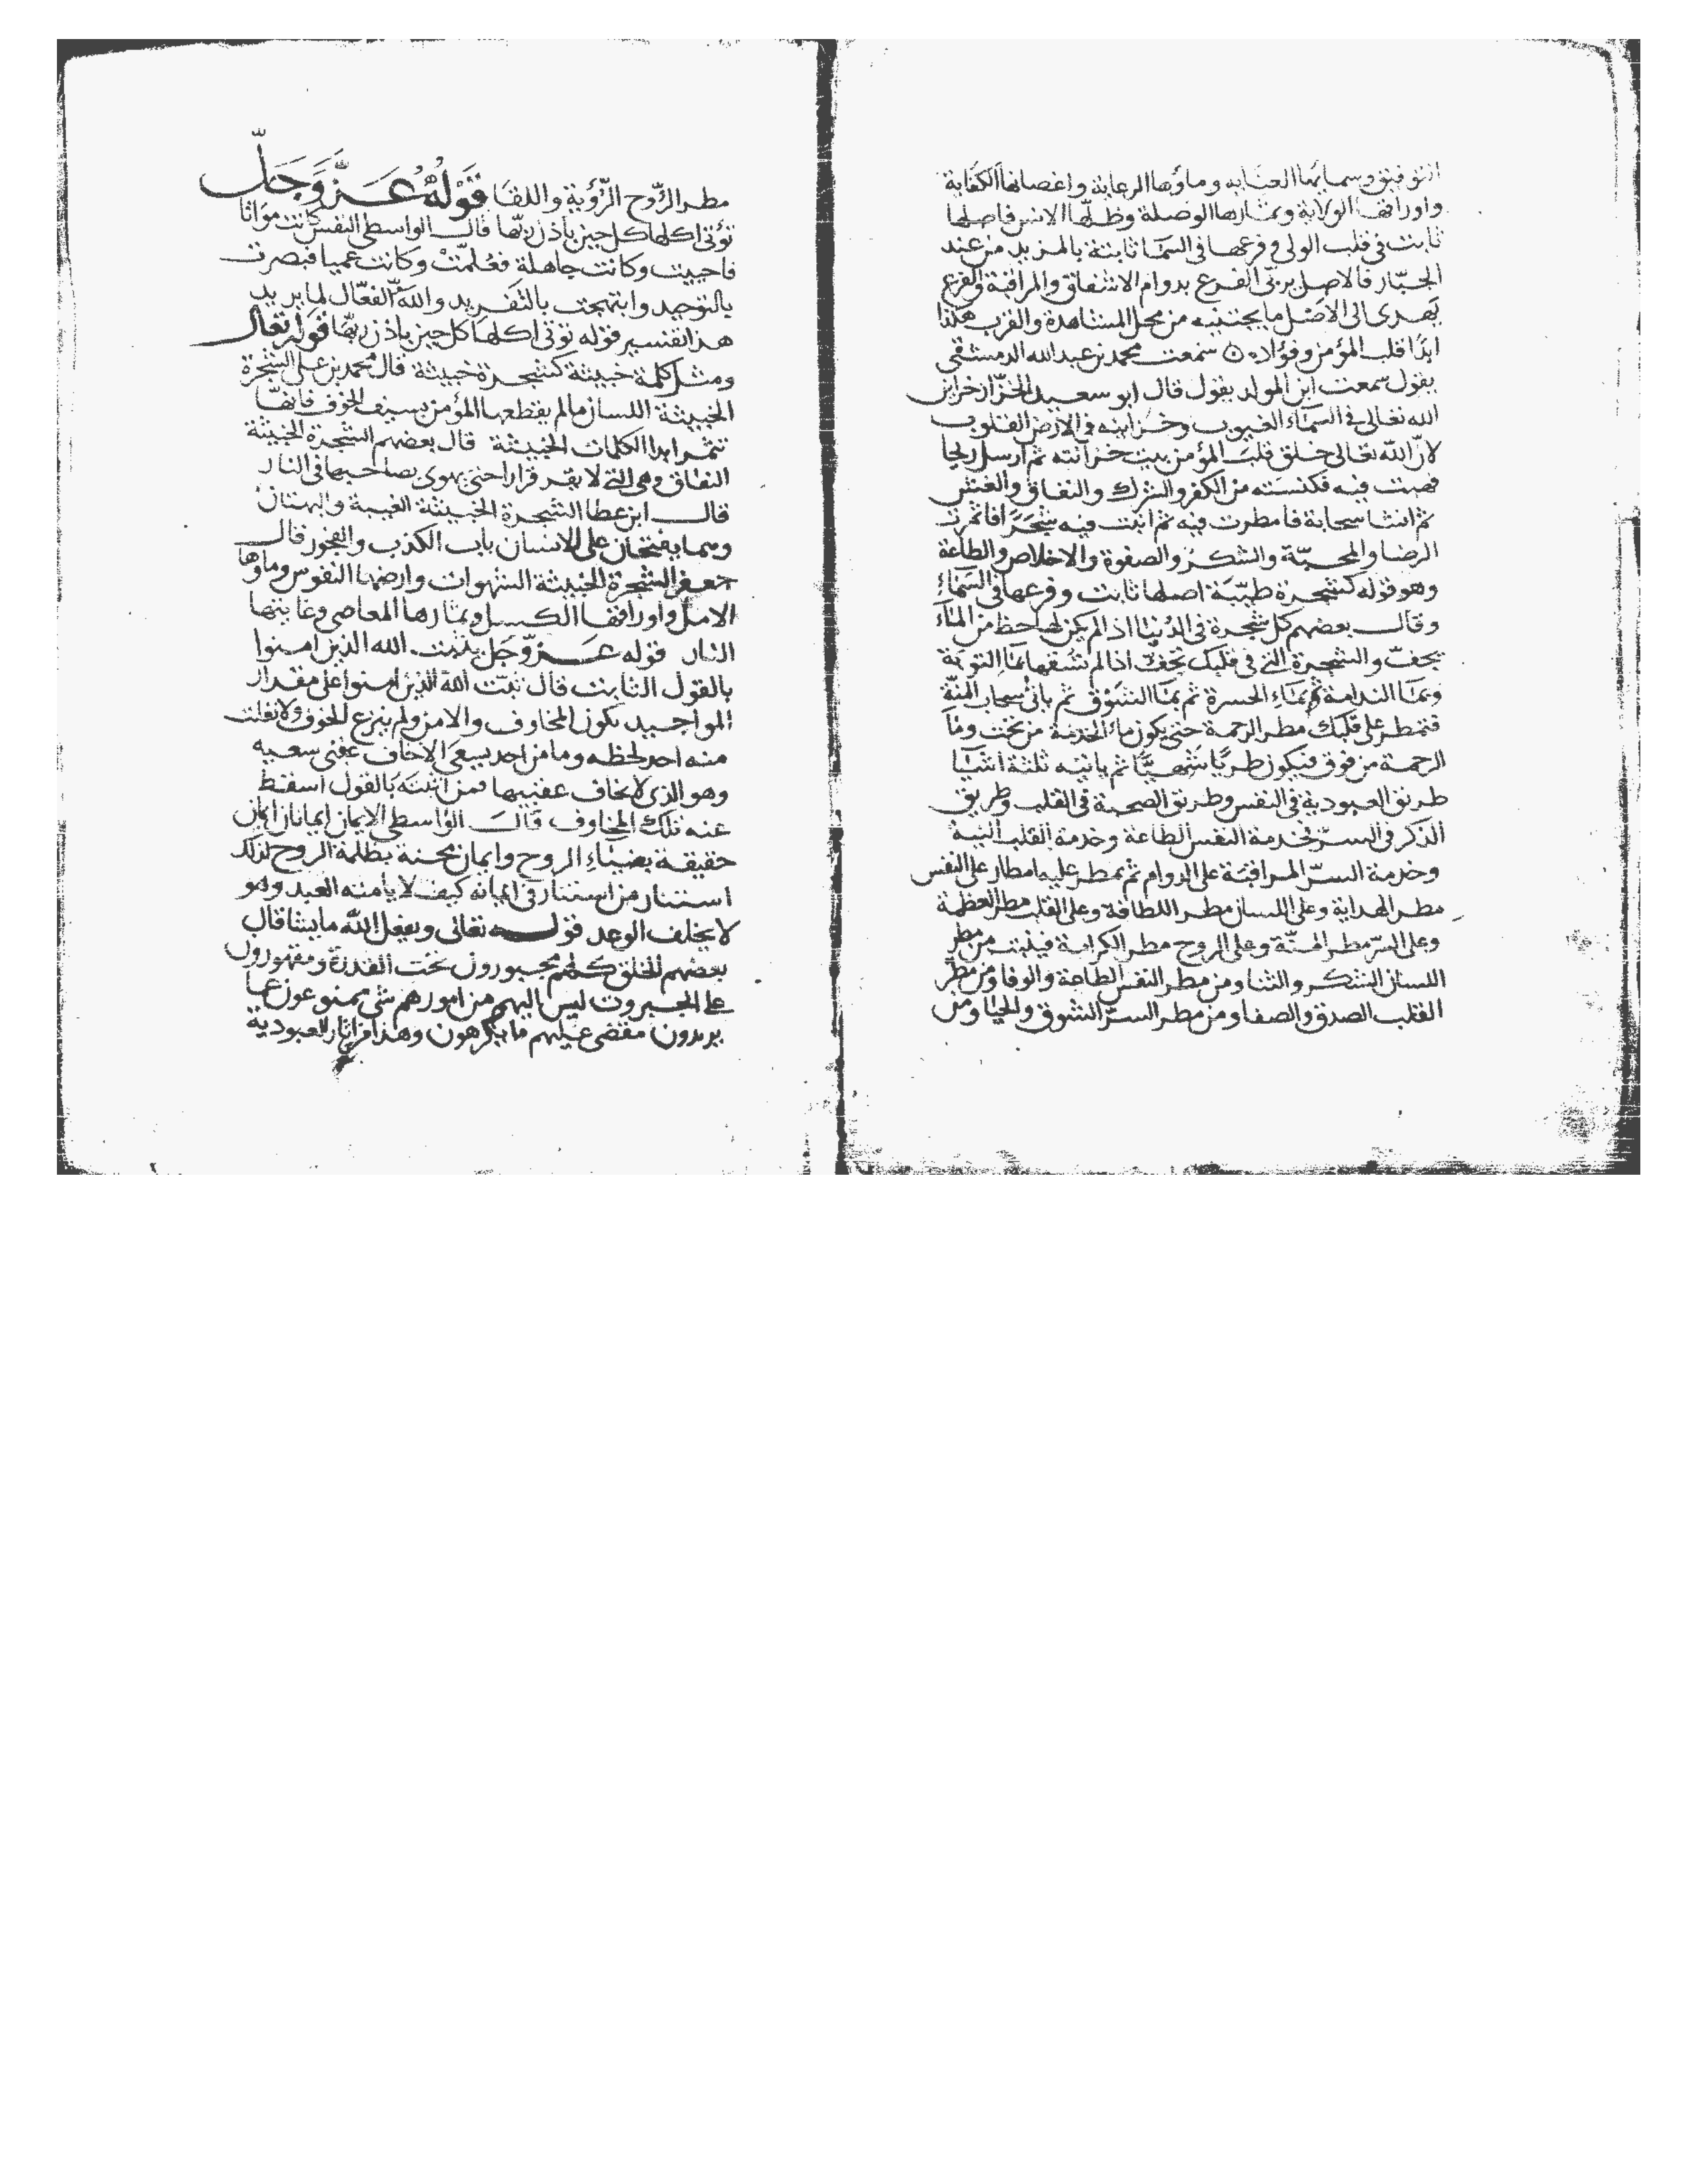 التوفيق وسماؤها العنايه وماؤها الرعاية واغصانها الكفاية
واوراقها الولاية وثمارها الوصلة وظلها الانس فاصلها
ثابت في قلب الولي وفرعها في السما ثابتة بالمزيد من عند
الجبّار فالاصل يربّي الفرع بدوام الاشفاق والمراقبة والفرع
يهدى الى الاصل ما يجتنيه من محل المشاهدة والقرب هكذا
ابدًا قلب المؤمن وفؤاده سمعت محمد بن عبد الله الدمشقي
يقول سمعت ابن المولد يقول قال ابو سعيد الخرّاز خزاين
الله تعالى في السمآء الغيوب وخزاينه في الارض القلوب
لانّ الله تعالى خلق قلب المؤمن بيت خزآئنه ثم ارسل ريحا
فهبت فيه فكنسته من الكفر والشرك والنفاق والغش
ثم انشا سحابة فامطرت فيه ثم انبت فيه شجرًا فاثمرت
الرضا والمحبّة والشكر والصفوة والاخلاص والطاعة
وهو قوله كشجرة طيّبة اصلها ثابت وفرعها في السّماءِ
وقال بعضهم كل شجرة في الدنيا اذا لم يكن لها حظ من المآء
تجفّ والشجرة التي في قلبك تجفّ اذا لم تسقها بمآء التوبة
وبمآ الندامة ثم بمآءِ الحسرة ثم بمآ التشوّق ثم ياتي سحاب المنّة
فتمطر على قلبك مطر الرحمة حتى يكون مآء الخدمة من تحت ومآ
الرحمة من فوق فيكون طريًا شهيًّا ثم ياتيه ثلثة اشيآ
طريق العبودية في النفس وطريق الصحبة في القلب وطريق
الذكر في السرّ فخدمة النفس الطاعة وخدمة القلب النية
وخدمة السرّ المراقبة على الدوام ثم يمطر عليها امطار على النفس
مطر الهداية وعلى اللسان مطر اللطافة وعلى القلب مطر العظمة
وعلى السرّ مطر المنّة وعلى الروح مطر الكرامة فينبت من مطر
اللسان الشكر والثنا ومن مطر النفس الطاعة والوفا ومن مطر
القلب الصدق والصفا ومن مطر السرّ الشوق والحيا ومن
مطر الرّوح الرّؤية واللقا قَوْلهُ عَزَّ وَجَلَّ
تؤتى اكلها كل حين باذن ربّها قال الواسطي النفس كانت مواتا
فاحييت وكانت جاهلة فعُلمّتْ وكانت عميا فبصرت
بالتوحيد وابتهجت بالتفريد والله الفعّال لما يريد
هذا تفسير قوله توتى اكلها كل حين باذن ربّها قوله تعالى
ومثل كلمة خبيثة كشجرة خبيثة قال محمد بن على الشجرة
الخبيثة اللسان ما لم يقطعها المؤمن بسيف الخوف فانهّا
تثمر ابدا الكلمات الخبيثة قال بعضهم الشجرة الخبيثة
النفاق وهي التي لا تقر قرارا حتى يهوى بصاحبها في النار
قال ابن عطا الشجرة الخبيثة الغيبة والبهتان
وهما يفتحان على الانسان باب الكذب والفجور قال
جعفر الشجرة الخبيثة الشهوات وارضها النفوس وماؤها
الامل واوراقها الكسل وثمارها المعاصي وغايتها
النار قوله عَزّ وَجَل يثبت الله الذين امنوا
بالقول الثابت قال ثبّت الله الذين امنوا على مقدار
المواجيد تكون المخاوف والامن ولم ينزع الخوف ولا يفلت
منه احد لحظه وما من احد يسعى الا خاف عقبى سعيه
وهو الذي لا يخاف عقبيها فمن اثبته بالقول اسقط
عنه تلك المخاوف قال الواسطي الايمان ايمانان ايمان
حقيقة بضياءِ الروح وايمان محنة بظلمة الروح لذلك
استثنا من استثنا في ايمانه كيف لا يامنه العبد وهو
لا يخلف الوعد قوله تعالى ويفعل الله ما يشا قال
بعضهم الخلق كلهم مجبورون تحت القدرة ومقهورون
على الجبروت ليس اليهم من امورهم شي ممنوعون عما
يريدون مقضى عليهم ما يكرهون وهذا من اثار العبودية